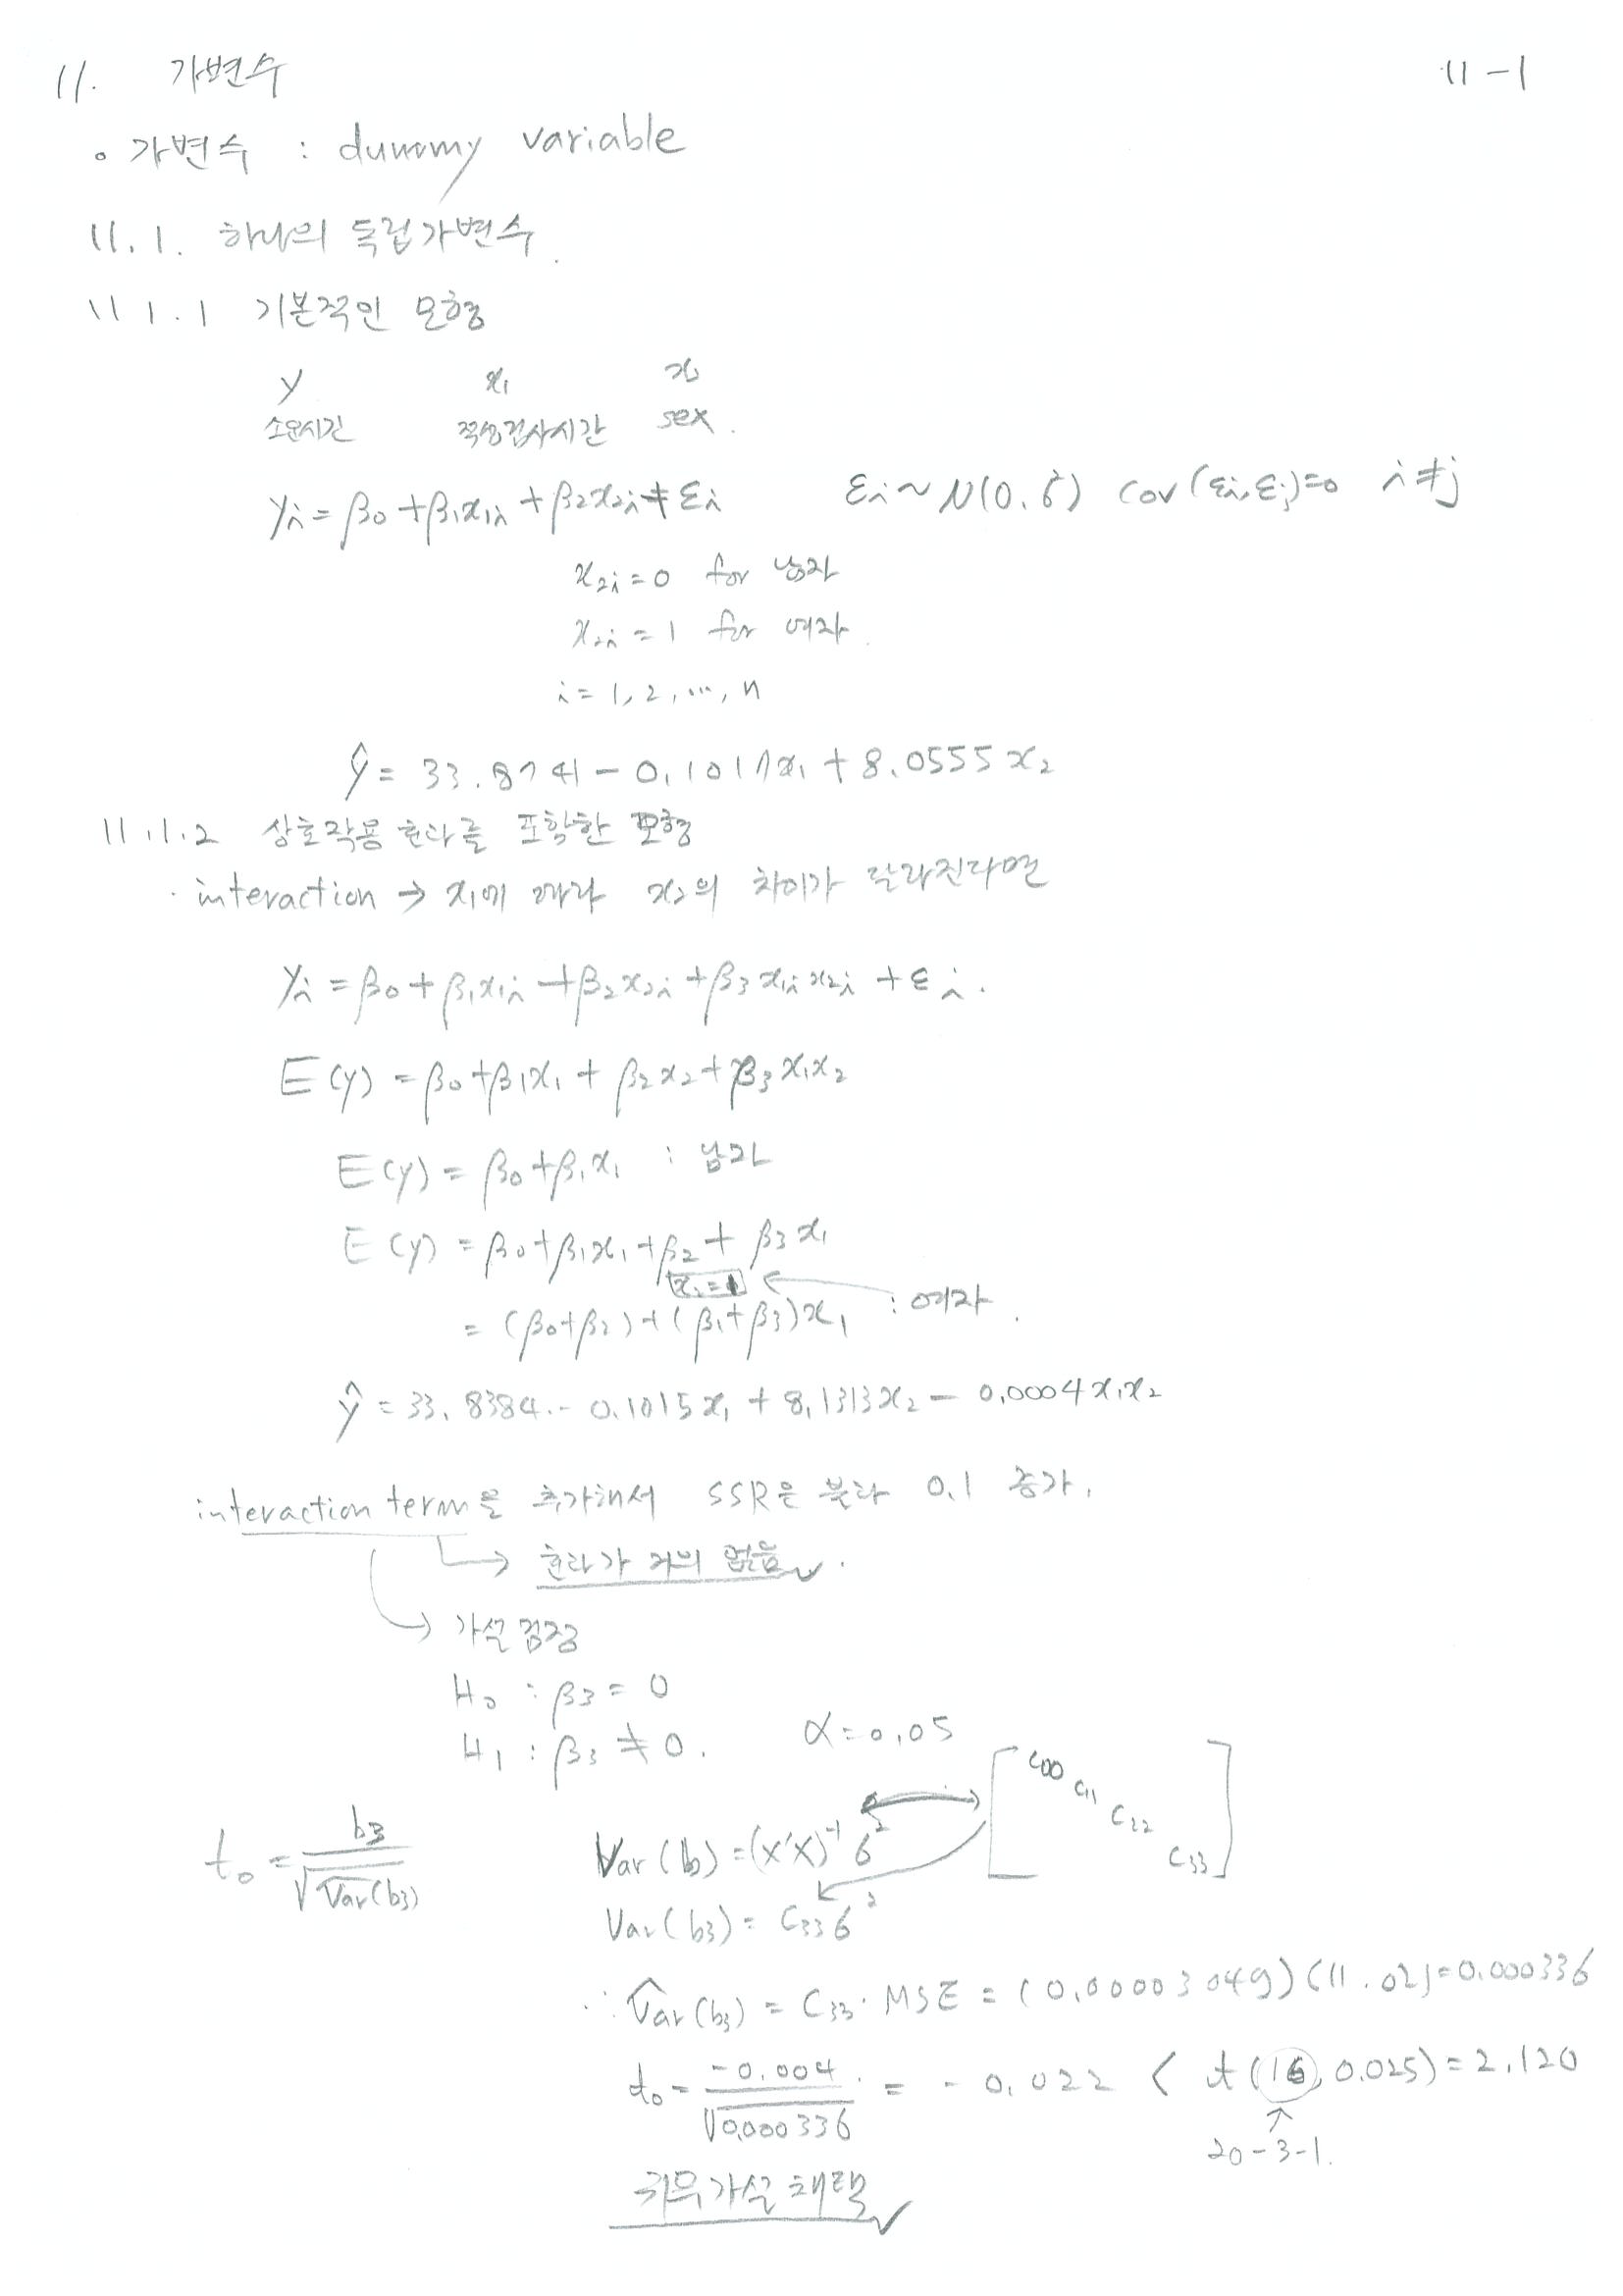 11. 가변수 11-1
∘ 가변수 : dummy variable
11.1. 하나의 독립가변수.
11 1.1 기본적인 모형
y x₁ x₂
소요시간 적성검사시간 sex.
yᵢ = β₀ + β₁x₁ᵢ + β₂x₂ᵢ + εᵢ εᵢ ~ N(0, σ²) cov(εᵢ, εⱼ)=0 i≠j
x₂ᵢ = 0 for 남자
x₂ᵢ = 1 for 여자.
i = 1, 2, ..., n
ŷ = 33.8741 - 0.1017x₁ + 8.0555x₂
11.1.2 상호작용 효과를 포함한 모형
· interaction → x₁에 따라 x₂의 차이가 달라진다면
yᵢ = β₀ + β₁x₁ᵢ + β₂x₂ᵢ + β₃x₁ᵢx₂ᵢ + εᵢ.
E(y) = β₀ + β₁x₁ + β₂x₂ + β₃x₁x₂
E(y) = β₀ + β₁x₁ : 남자
E(y) = β₀ + β₁x₁ + β₂ + β₃x₁
x₂=1
= (β₀+β₂) + (β₁+β₃)x₁ : 여자.
ŷ = 33.8384 - 0.1015x₁ + 8.1313x₂ - 0.0004x₁x₂
interaction term을 추가해서 SSR은 불과 0.1 증가.
→ 효과가 거의 없음.
→ 가설검정
H₀ : β₃ = 0
H₁ : β₃ ≠ 0. α = 0.05
c₀₀ c₁₁ c₂₂ c₃₃
t₀ = b₃ / √Var(b₃) Var(b) = (X'X)⁻¹σ²
Var(b₃) = c₃₃σ²
∴ V̂ar(b₃) = c₃₃·MSE = (0.00003049)(11.02)=0.000336
t₀ = -0.004 / √0.000336 = -0.022 < t(16, 0.025) = 2.120
↑
20-3-1.
귀무가설 채택